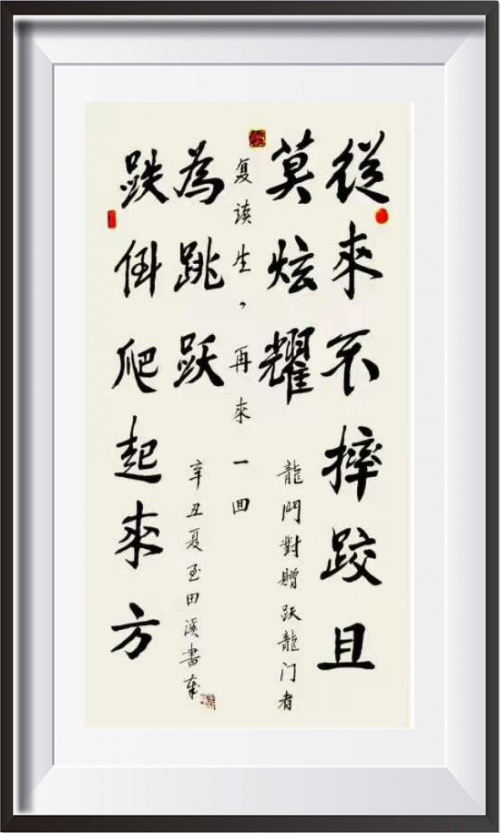 從來不摔跤且
莫炫耀
龍門對贈跃龍门者
复读生，再來一回
跌倒爬起來方
為跳跃
辛丑夏玉田溪書